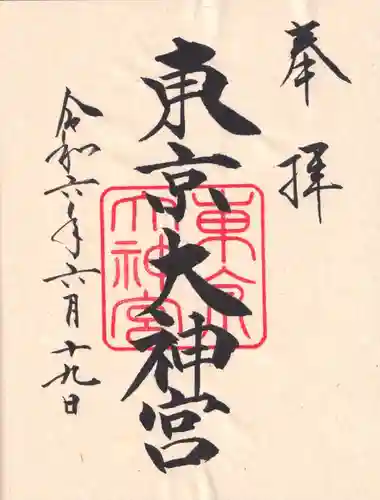 奉拝
東京大神宮
東京大神宮
令和六年六月十九日